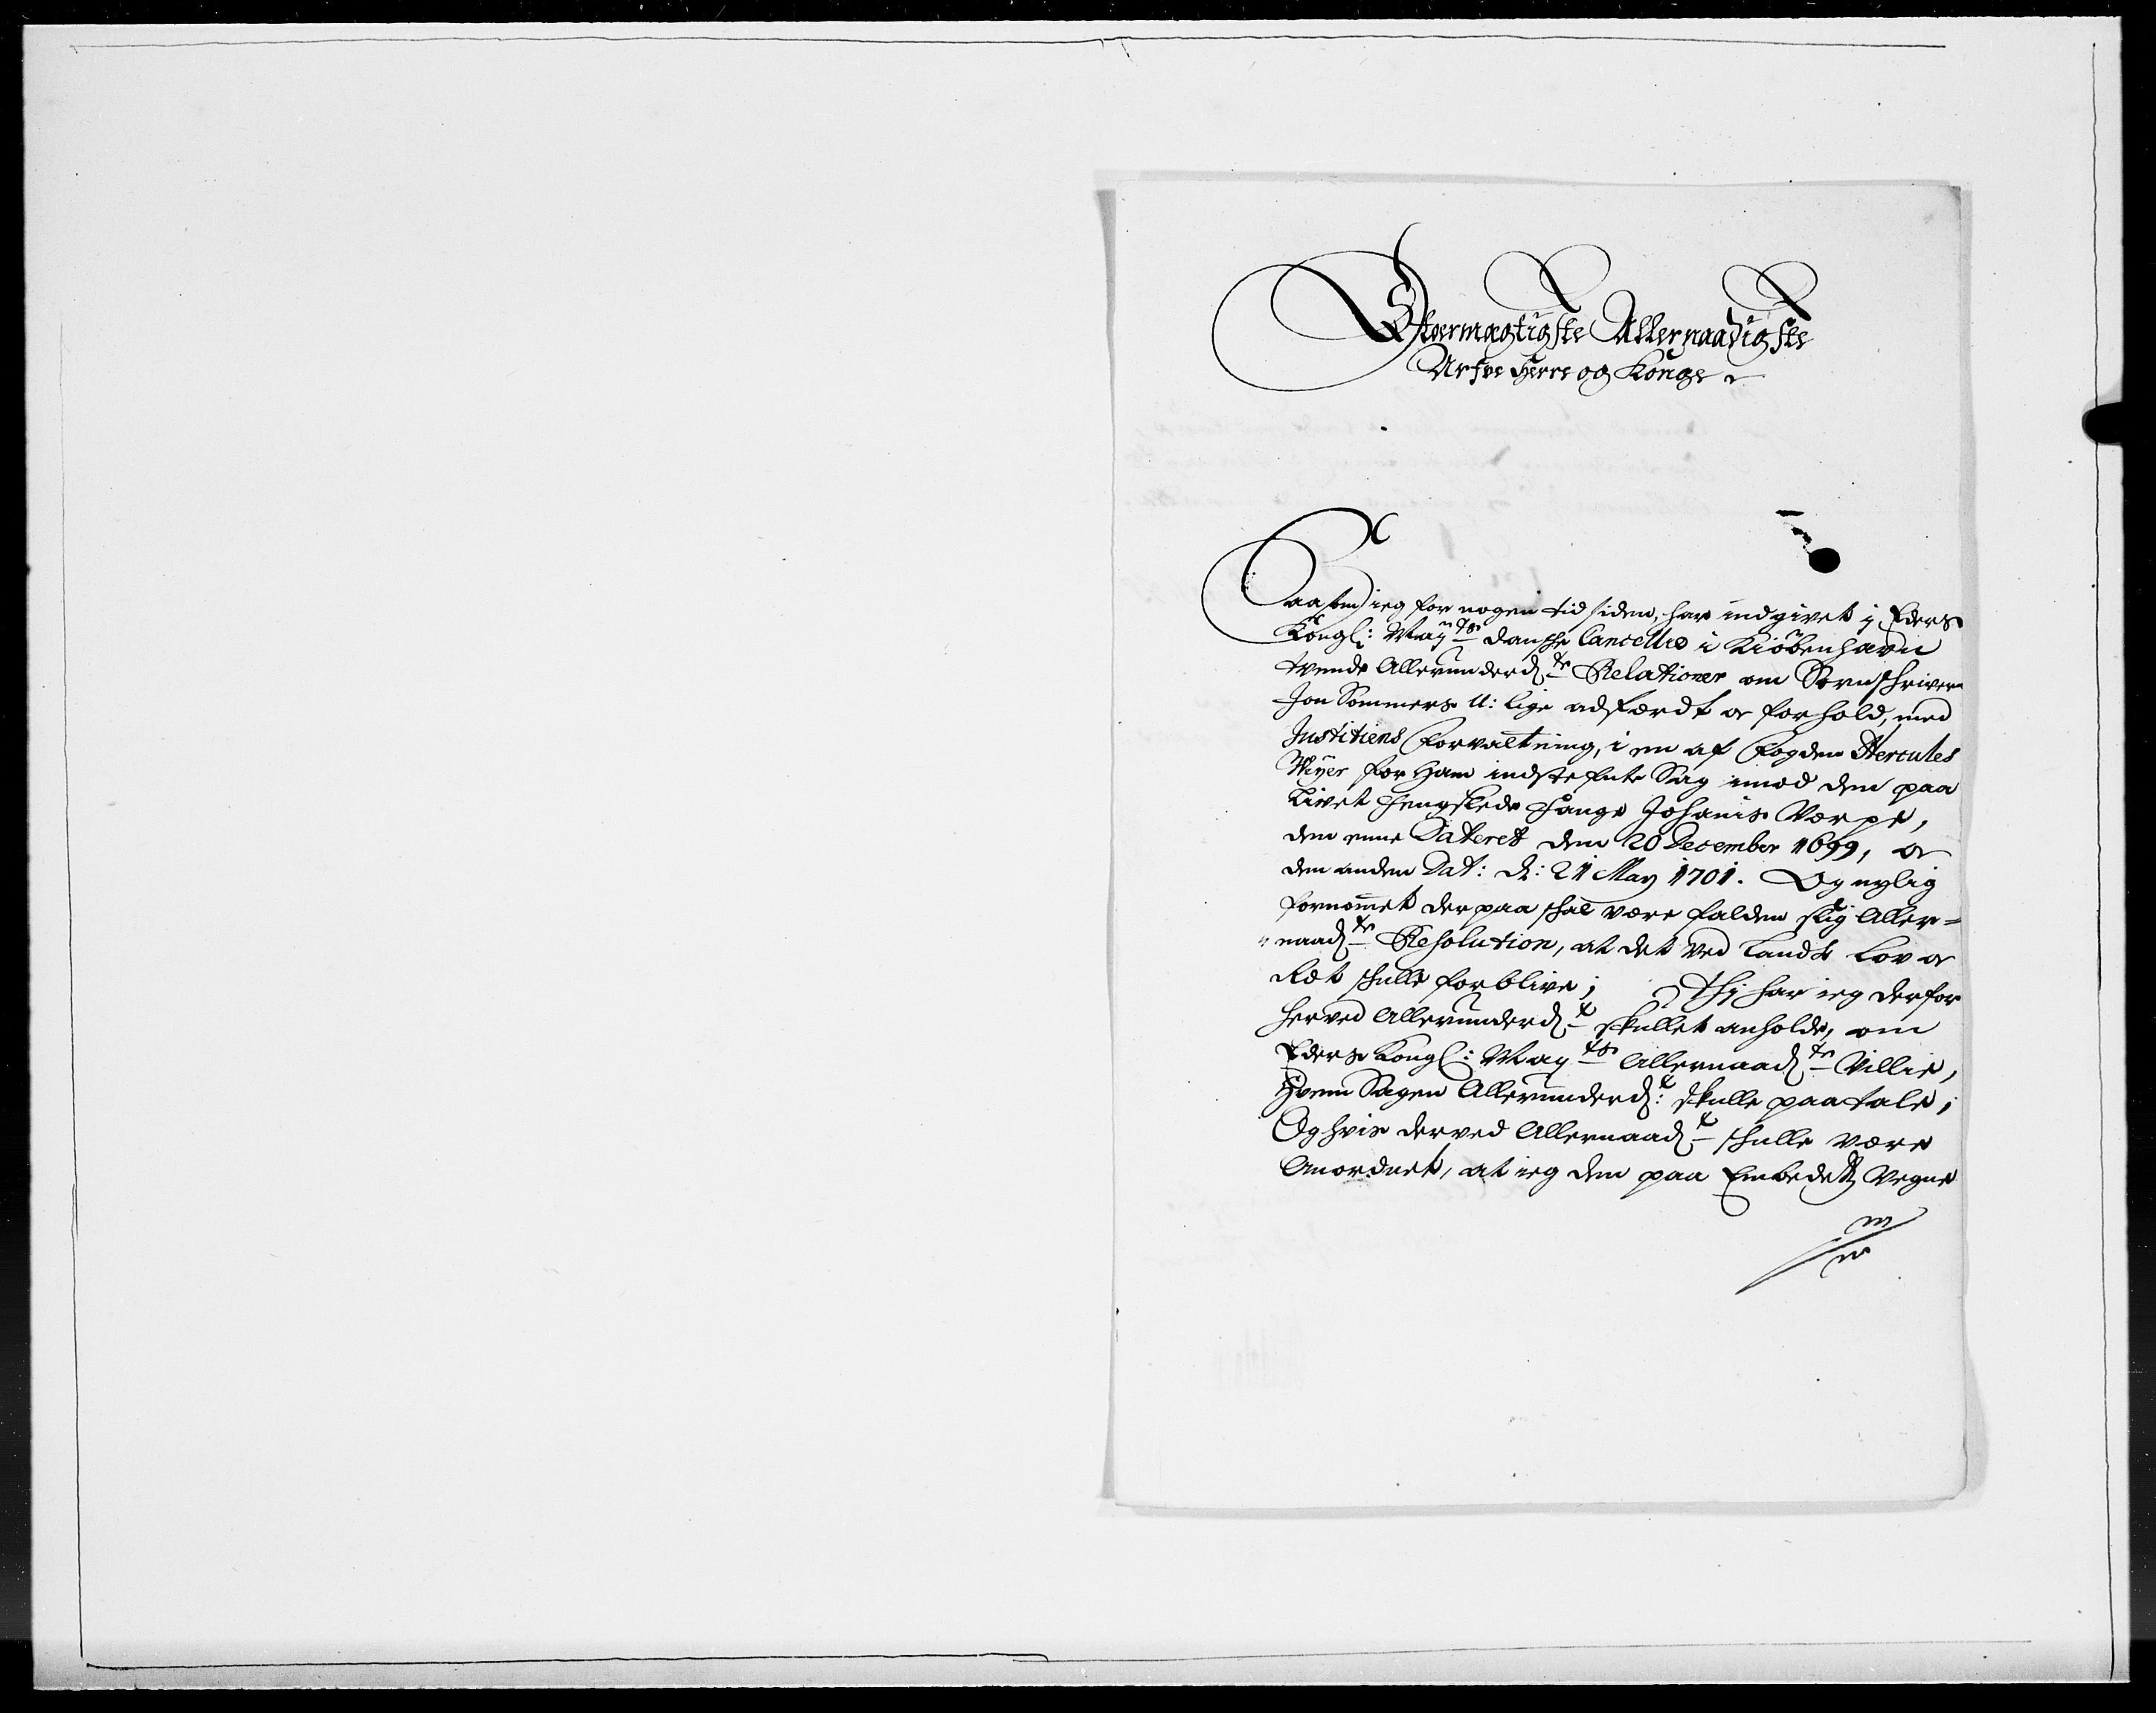 Stormægtigste Allernaadigste
Arfve Herre og Konge
Saasom ieg for nogen tid siden, har indgivet ij Eders
Kongl: May:ts danske Cancellie i Kiöbenhavn
tvende Allerunderd:te Relationer om Sorenskriver
Jon Sommers U:lige adfærdt og forhold, med
Justitiens Forvaltning, i en af Fogden Hercules
Weyer for ham indstefnte Sag imod den paa
Livet fengslede fange Johanis Værpe,
den enne Dateret den 20 December 1699, og
den anden Dat: d: 21 May 1701. Og nylig
fornommet derpaa skal være falden slig Aller=
naad:te Resolution, at det ved Lands Lov og
Ræt skulle forblive; Thj har ieg derfor
herved Allerunderd:t skullet anholde, om
Eders Kongl: May:ts Allernaad:te Villie,
Hvem Sagen Allerunderd:t skulle paatale;
Og hvis derved Allernaad:t skulle være
Anordnet, at ieg den paa Embedetz Vegne